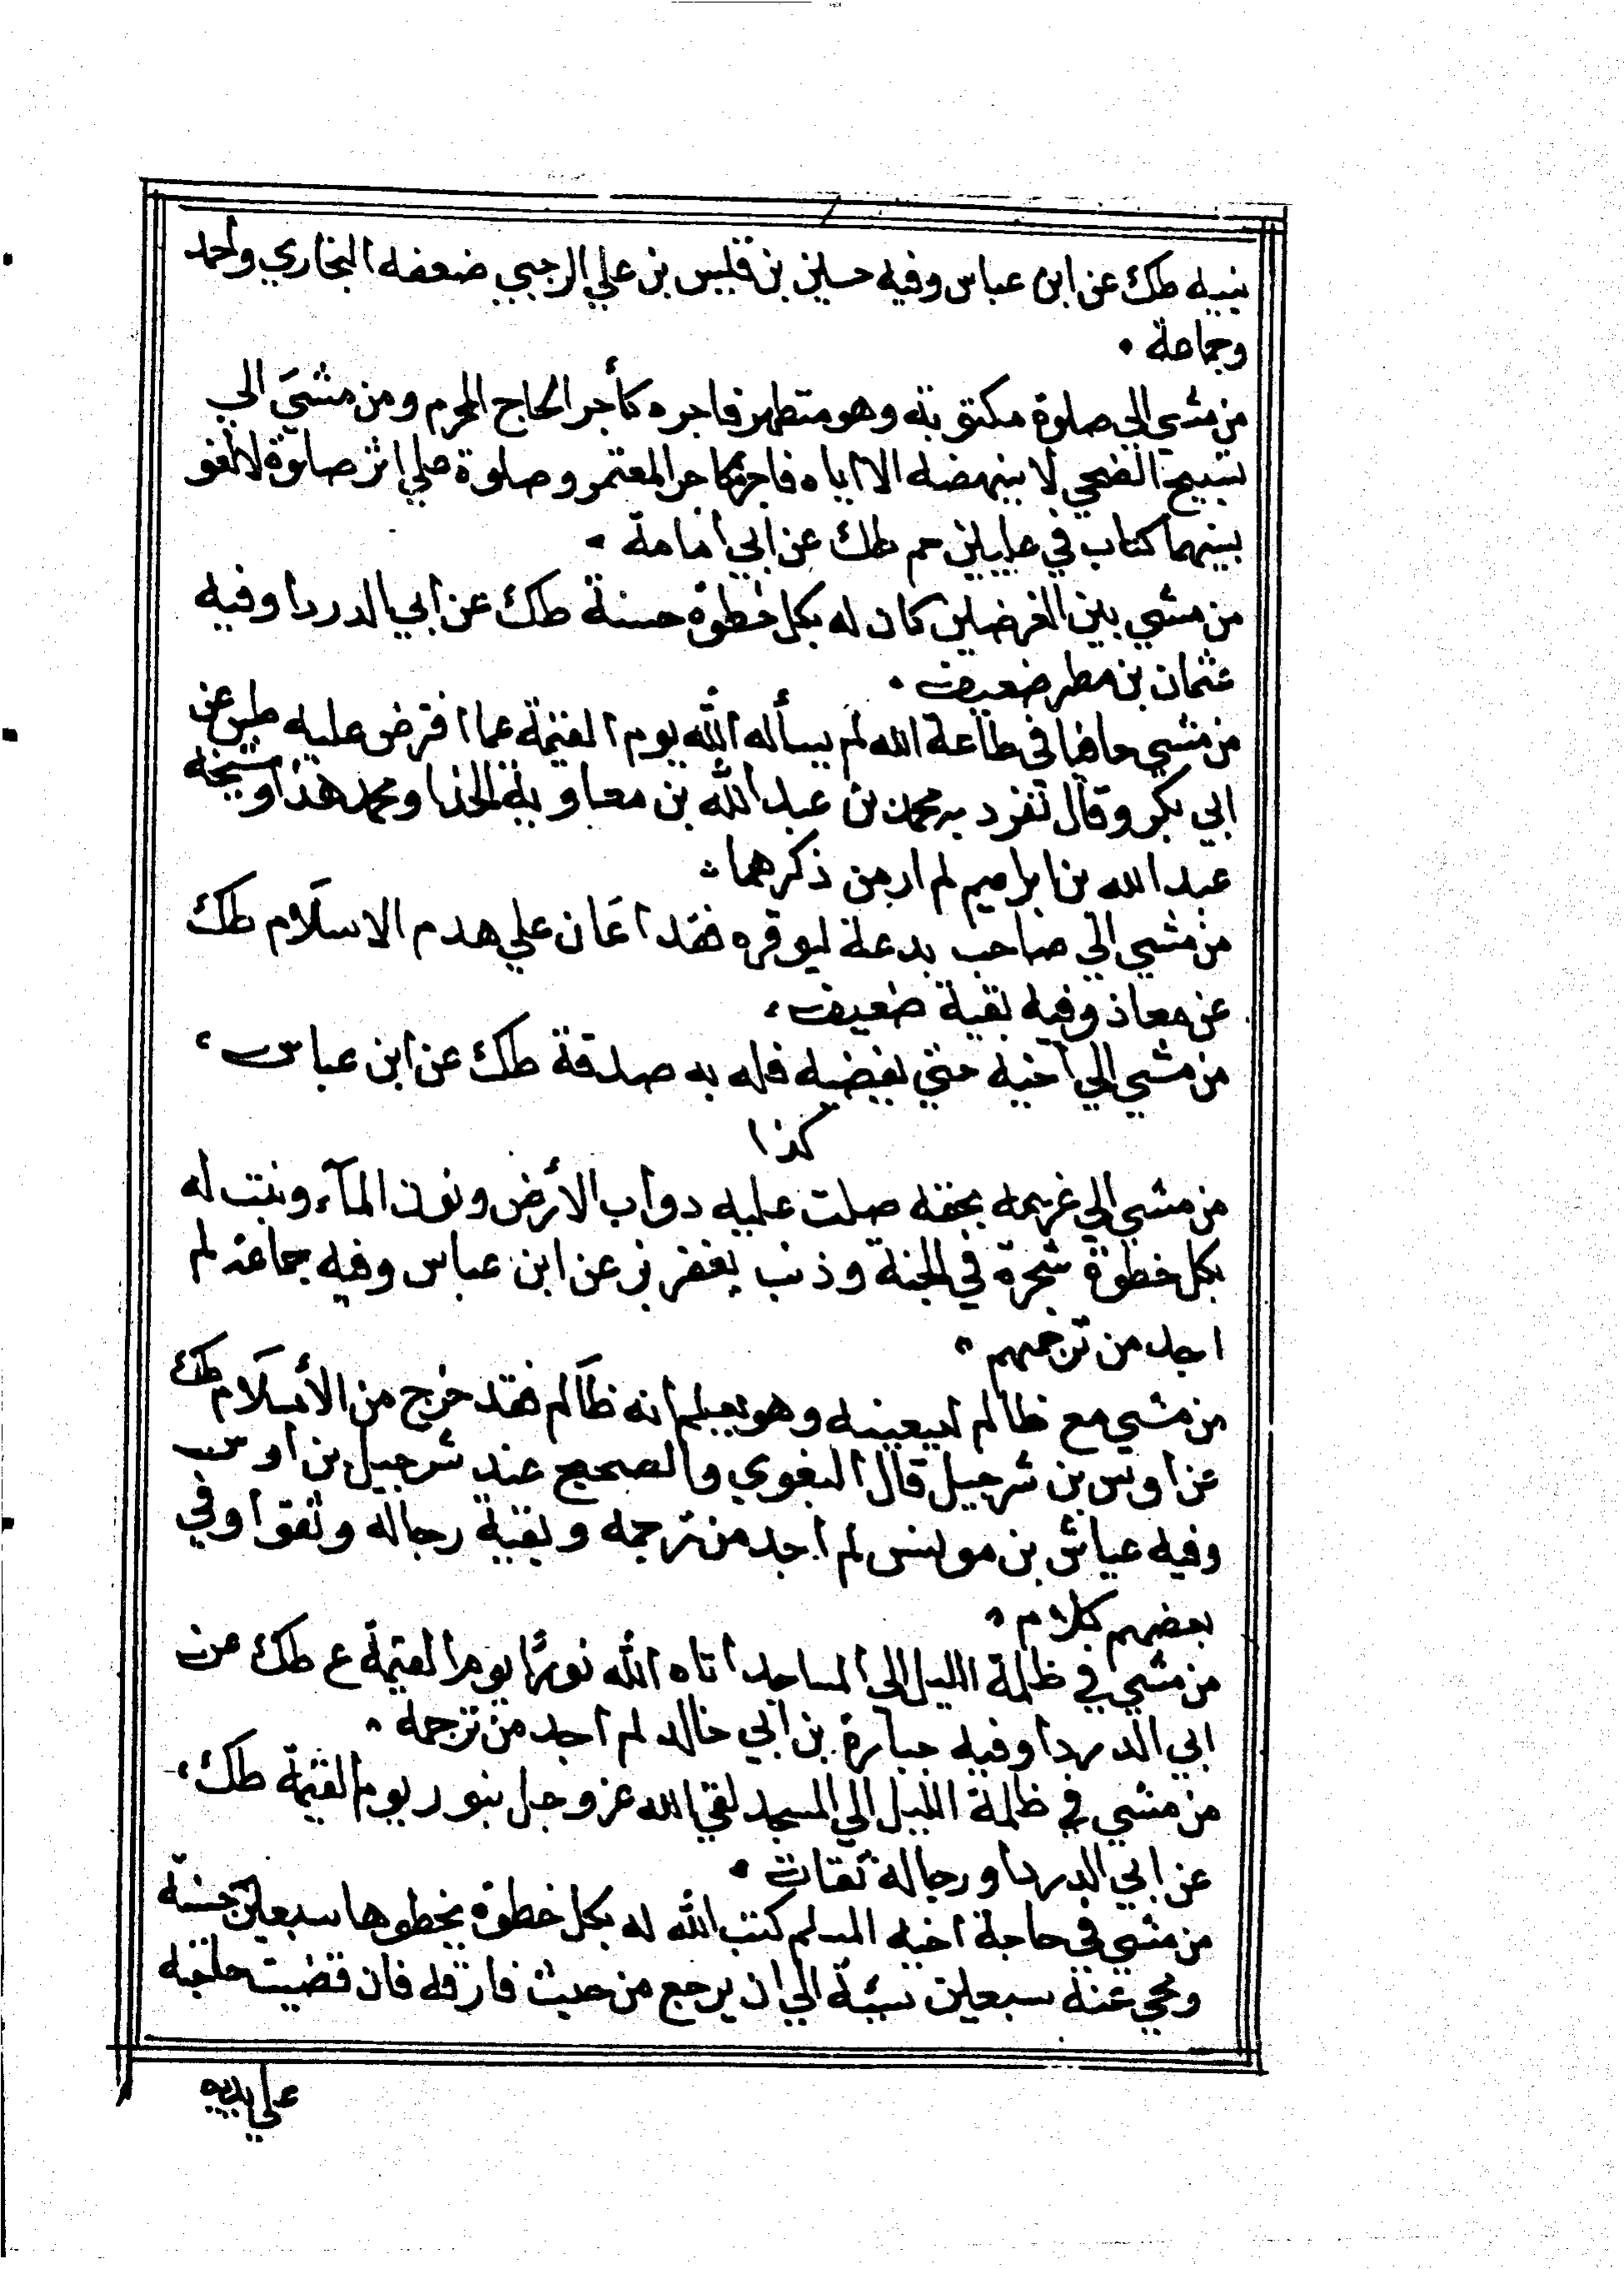 نبيه طك عن ابن عباس وفيه حسين بن قيس بن علي الرحبي ضعفه البخاري واحمد
وجماعة .
من مشي الي صلوة مكتوبة وهو متطهر فاجره كأجر الحاج المحرم ومن مشيَ الي
تسبيح الضحي لا ينهضه الا اياه فاجره كاجر المعتمر وصلوة علي اثر صلوة لا لغو
بينهما كتاب في عليين حم طك عن ابي امامة .
من مشي بين الغرضين كان له بكل خطوة حسنة طك عن ابي الدردا وفيه
عثمان بن مطر ضعيف .
من مشي حافيا في طاعة الله لم يسأله الله يوم القيمة عما افترض عليه طس عن
ابي بكر وقال تفرد به محمد بن عبد الله بن معاوية الحذا ومحمد هذا وشيخه
عبد الله بن ابراهيم لم ار من ذكرهما :
من مشي الي صاحب بدعة ليوقره فقد اعَان علي هدم الاسلَام طك
عن معاذ وفيه بقية ضعيف ،
من مشي الي اخيه حتي يقضيه فله به صدقة طك عن ابن عباس ،
كذا
من مشي الي غريمه بحقه صلت عليه دواب الأرض ونون المآء ونبت له
بكل خطوة شجرة في الجنة وذنب يغفر بز عن ابن عباس وفيه جماعة لم
اجد من ترجمهم .
من مشي مع ظالم ليعينه وهو يعلم انه ظَالم فقد خرج من الأسلَام طك
عن اوس بن شرحبيل قال البغوي والصحيح عند شرحبيل بن اوس
وفيه عياش بن مونس لم اجد من ترجمه وبقية رجاله وثقوا وفي
بعضهم كلام .
من مشي في ظلمة الليل الي المساجد اتاه الله نورًا يوم القيمة ع طك عن
ابي الدردا وفيه جبارة بن ابي خالد لم اجد من ترجمه .
من مشي في ظلمة الليل الي المسجد لقي الله عز وجل بنور يوم القيمة طك ،
عن ابي الدردا ورجاله ثقات .
من مشي في حاجة اخيه المسلم كتب الله له بكل خطوة يخطوها سبعين حسنة
ومحي عنه سبعين سيئة الي ان يرجع من حيث فارقه فان قضيت حاجته
علي يديه